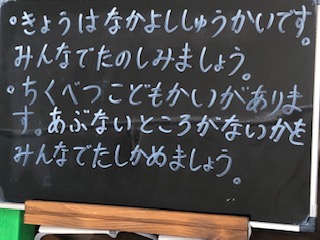 。きょうはなかよししゅうかいです。
みんなでたのしみましょう。
。ちくべつこどもかいがありま
す。あぶないところがないかを
みんなでたしかめましょう。